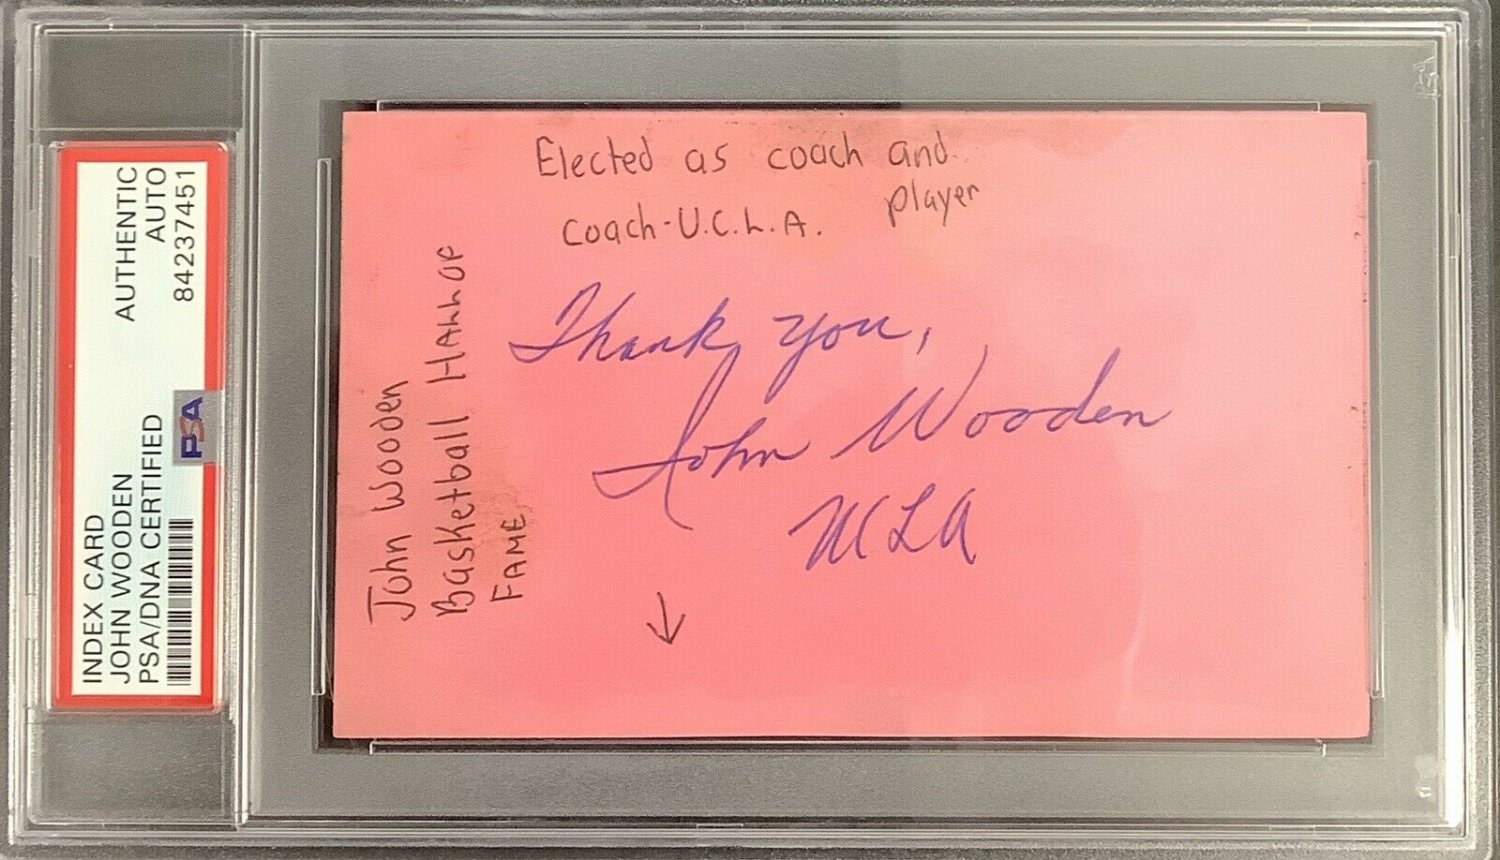 INDEX CARD
JOHN WOODEN
PSA/DNA CERTIFIED
AUTHENTIC
AUTO
84237451
PSA
Elected as coach and
player
coach-U.C.L.A.
John Wooden
Basketball Hall of
Fame
Thank you,
John Wooden
UCLA